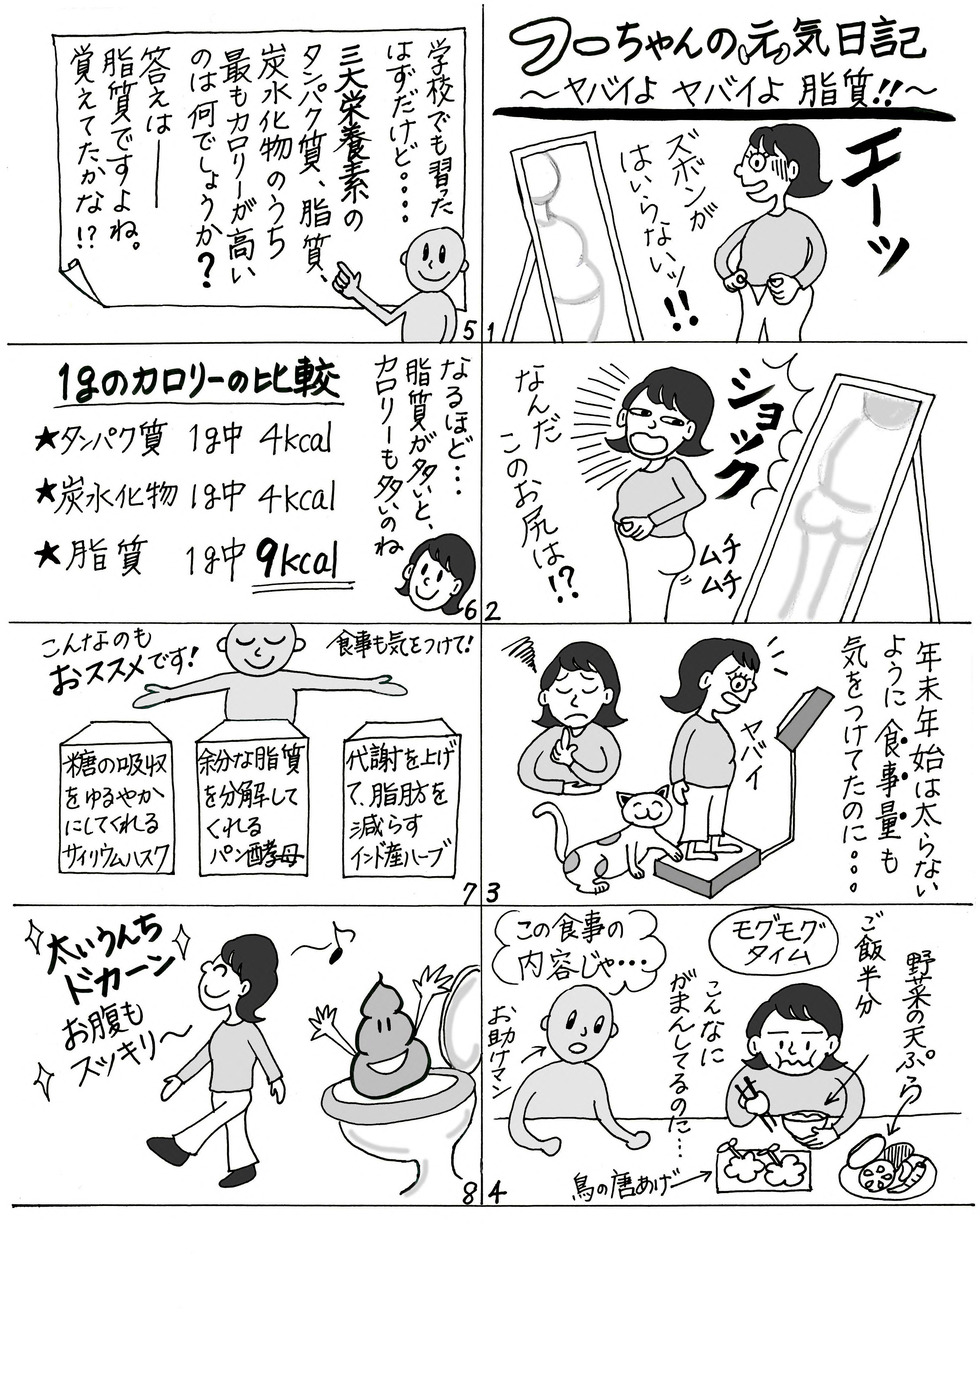 フーちゃんの元気日記
〜ヤバイよ ヤバイよ 脂質!!〜
エーッ
ズボンが
はいらないッ!!
1
ショック
なんだ
このお尻は!?
ムチ
ムチ
2
年末年始は太らない
ように食事量も
気をつけてたのに。。。
ヤバイ
3
モグモグ
タイム
野菜の天ぷら
ご飯半分
こんなに
がまんしてるのに…
この食事の
内容じゃ…
お助けマン
鳥の唐あげ
4
学校でも習った
はずだけど。。。。
三大栄養素の
タンパク質、脂質、
炭水化物のうち
最もカロリーが高い
のは何でしょうか?
答えは――
脂質ですよね。
覚えてたかな!?
5
1gのカロリーの比較
★タンパク質 1g中 4kcal
★炭水化物 1g中 4kcal
★脂質 1g中 9kcal
なるほど…
脂質が多いと、
カロリーも多いのね
6
こんなのも
おススメです!
食事も気をつけて!
糖の吸収
をゆるやか
にしてくれる
サイリウムハスク
余分な脂質
を分解して
くれる
パン酵母
代謝を上げ
て、脂肪を
減らす
インド産ハーブ
7
太いうんち
ドカーン
お腹も
スッキリ〜
8